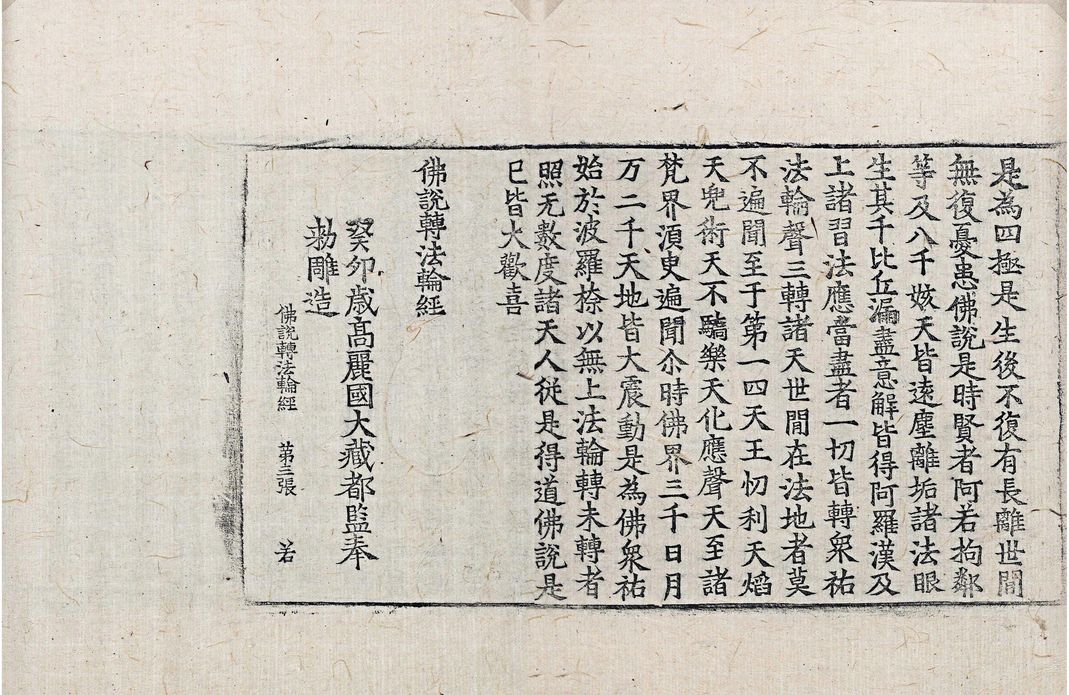 是為四極是生後不復有長離世間
無復憂患佛說是時賢者阿若拘鄰
等及八千姟天皆遠塵離垢諸法眼
生其千比丘漏盡意解皆得阿羅漢及
上諸習法應當盡者一切皆轉衆祐
法輪聲三轉諸天世間在法地者莫
不遍聞至于第一四天王忉利天焰
天兜術天不驕樂天化應聲天至諸
梵界湏臾遍聞尒時佛界三千日月
万二千天地皆大震動是為佛衆祐
始於波羅㮈以無上法輪轉未轉者
照无數度諸天人從是得道佛說是
已皆大歡喜
佛說轉法輪經
癸卯歲高麗國大藏都監奉
勑雕造
佛說轉法輪經 第三張 若